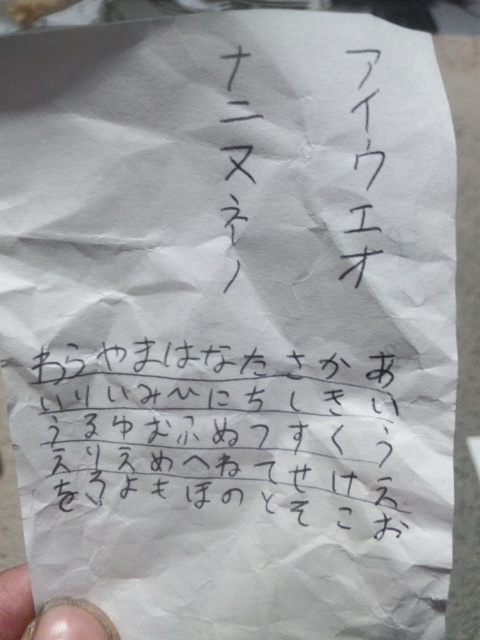 アイウエオ
ナニヌネノ
あいうえお
かきくけこ
さしすせそ
たちつてと
なにぬねの
はひふへほ
まみむめも
やいゆえよ
らりるりろ
わいうえを